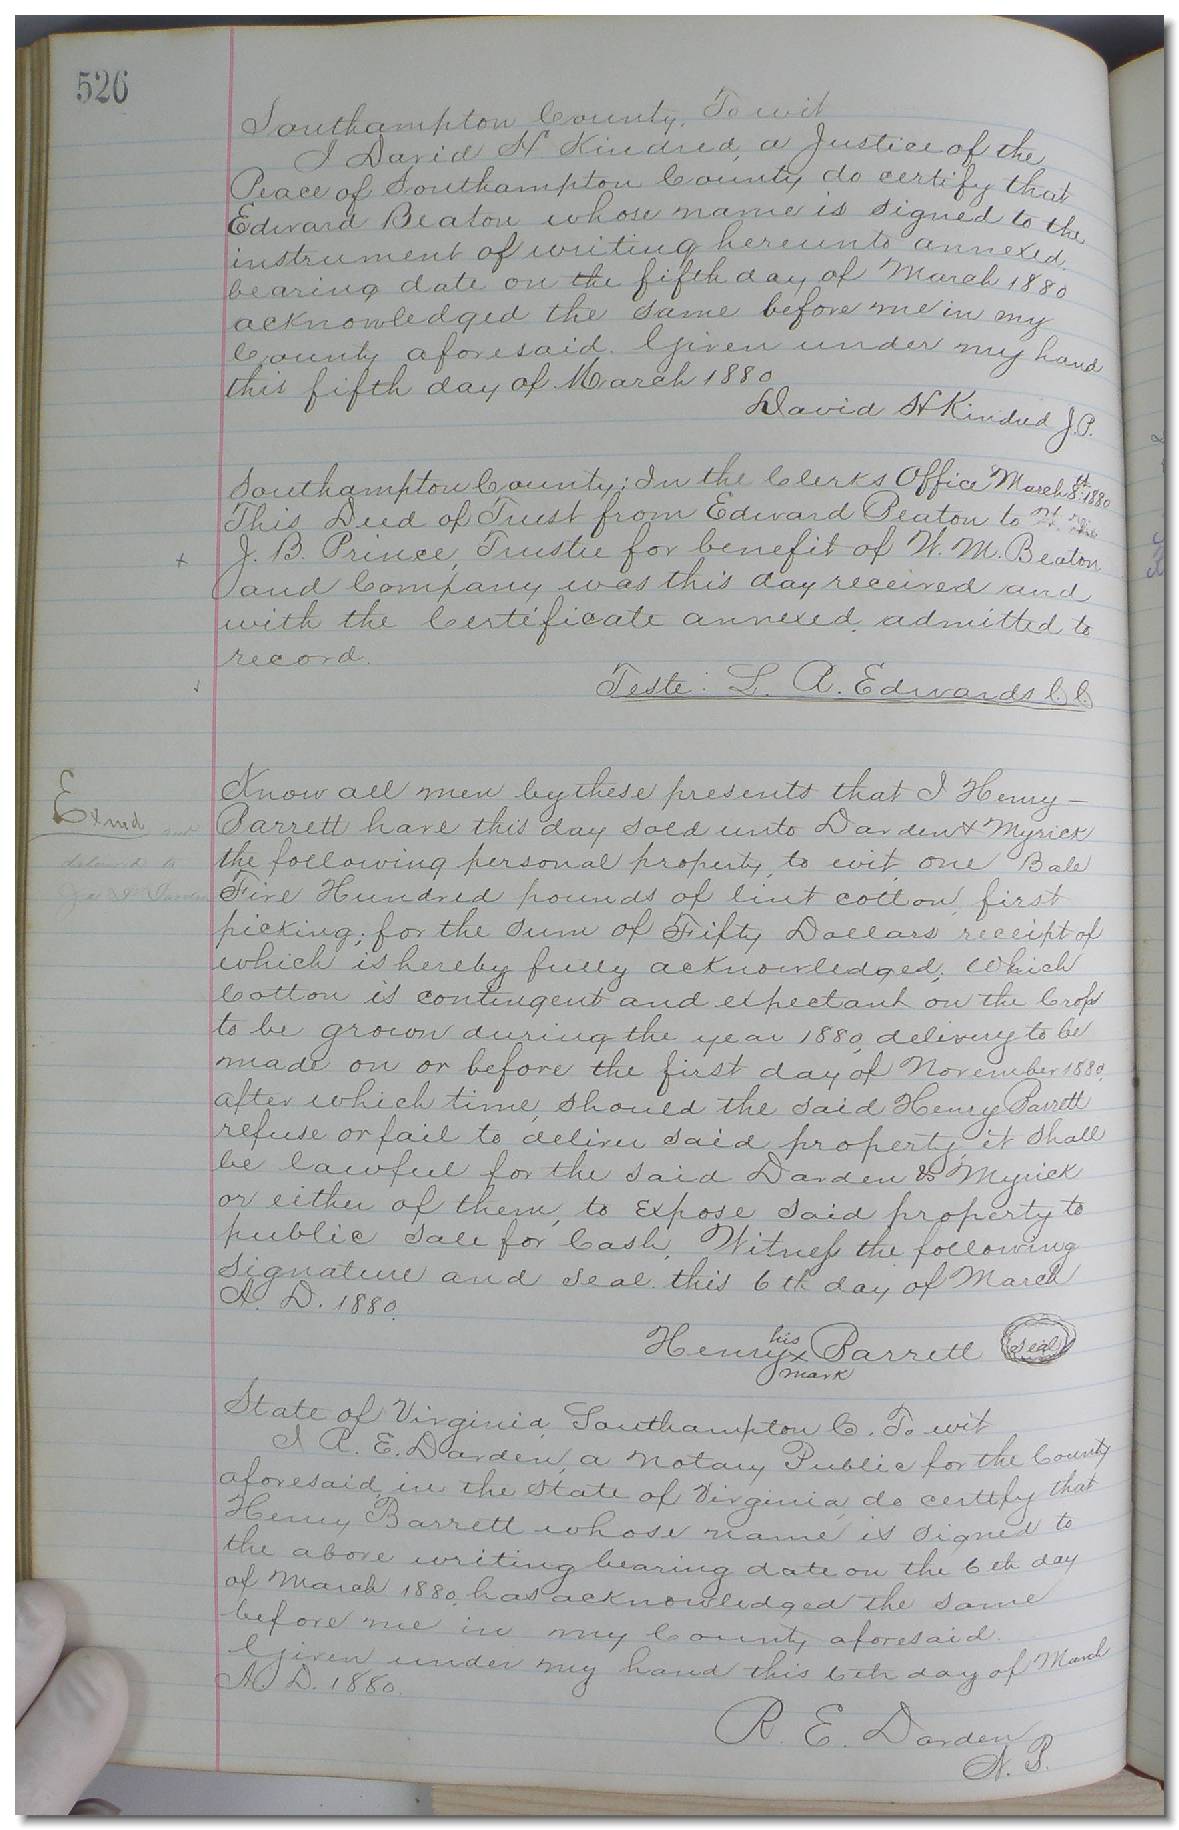 526
Southampton County, To wit
I David H Kindred, a Justice of the
Peace of Southampton County do certify that
Edward Beaton whose name is signed to the
instrument of writing hereunto annexed,
bearing date on the fifth day of March 1880
acknowledged the same before me in my
County aforesaid. Given under my hand
this fifth day of March 1880
David H Kindred J.P.
Southampton County: In the Clerks Office March 8th 1880
This Deed of Trust from Edward Beaton to
J. B. Prince, Trustee for benefit of W. M. Beaton
and Company was this day received and
with the Certificate annexed, admitted to
record.
Teste: L. A. Edwards C. C.
Exmd and
delivered to
Know all men by these presents that I Henry -
Barrett have this day sold unto Darden & Myrick
the following personal property, to wit, one Bale
Five Hundred pounds of lint cotton, first
picking; for the sum of Fifty Dollars receipt of
which is hereby fully acknowledged; Which
Cotton is contingent and expectant on the Crops
to be grown during the year 1880, delivery to be
made on or before the first day of November 1880,
after which time, should the said Henry Barrett
refuse or fail to deliver said property, it shall
be lawful for the said Darden & Myrick
or either of them, to expose said property to
public sale for Cash. Witness the following
signature and seal this 6th day of March
A. D. 1880.
Henry his x mark Barrett Seal
State of Virginia, Southampton C. To wit
I R. E. Darden, a Notary Public for the County
aforesaid, in the State of Virginia, do certify that
Henry Barrett whose name is signed to
the above writing bearing date on the 6th day
of March 1880, has acknowledged the same
before me in my County aforesaid.
Given under my hand this 6th day of March
A. D. 1880.
R. E. Darden
N. P.